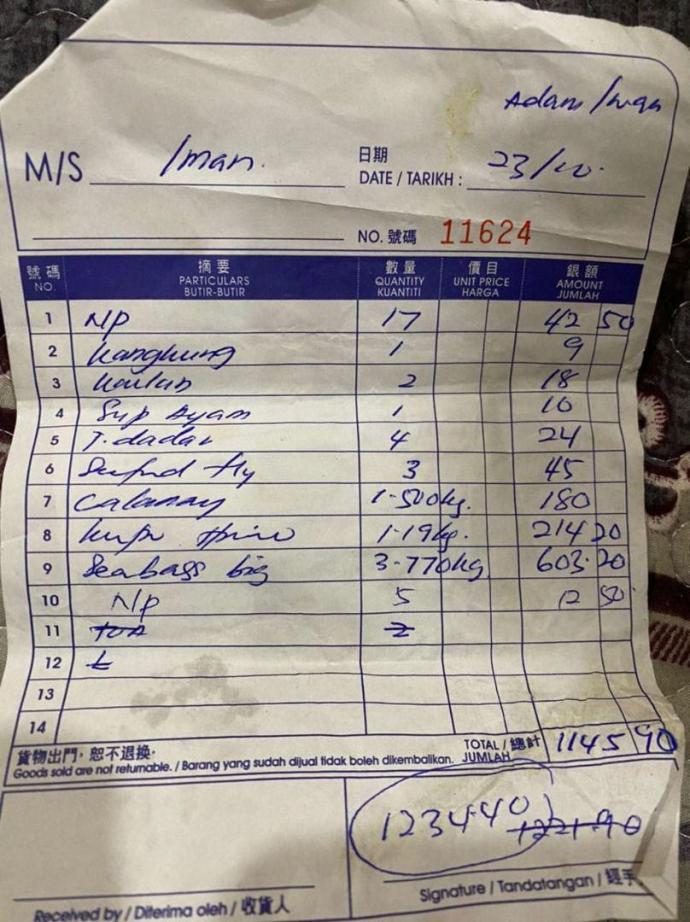 Adam /
M/S Iman. 日期 DATE / TARIKH : 23/10.
NO. 號碼 11624
號碼 NO. 摘要 PARTICULARS BUTIR-BUTIR 數量 QUANTITY KUANTITI 價目 UNIT PRICE HARGA 銀額 AMOUNT JUMLAH
1 NP 17 42 50
2 Kangkung 1 9
3 Kailan 2 18
4 Sup Ayam 1 10
5 T. dadar 4 24
6 3 45
7 Calamary 1-500kg. 180
8 1-19kg. 214 20
9 Seabass big 3-770kg 603.20
10 N/p 5 12 50
11 2
12
13
14
貨物出門，恕不退換. TOTAL / 總計 1145 90
Goods sold are not returnable. / Barang yang sudah dijual tidak boleh dikembalikan. JUMLAH
1234.40 1221.90
Received by / Diterima oleh / 收貨人 Signature / Tandatangan / 經手